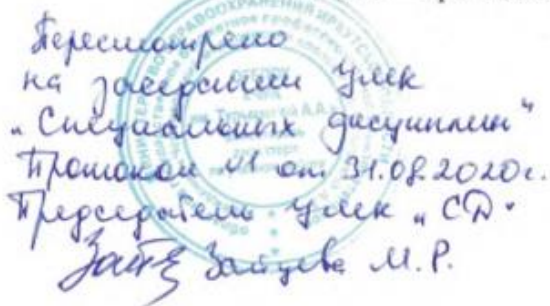 Пересмотрено
на заседании ЦМК
„Специальных дисциплин"
Протокол №1 от 31.08.2020г.
Председатель ЦМК „СД"
Зайцева М.Р.